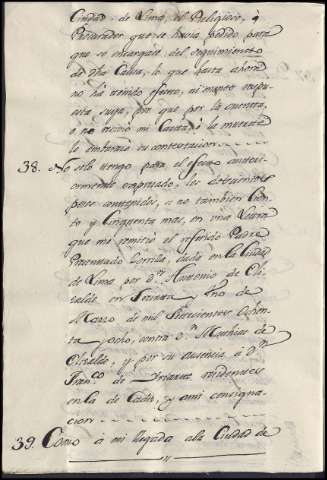 Ciudad de Lima, el Religioso, ó
Procurador que se havia pedido para
que se encargase del seguimiento
de dha Causa, lo que hasta ahora
no há tenido efecto, ni menos respu
esta suya, por que por la cuenta,
o no recivió mi Carta, ó la muerte
le embarazó su contestacion
38. No solo tengo para el efecto anteri
ormente expresado, los doscientos
pesos contenidos, sino tambien Cien
to y Cinquenta mas, en una Letra
que me remitió el referido Padre
Presentado Zorrilla, dada en la Ciudad
de Lima por dn. Antonio de Eli
zalde, en Treinta y Uno de
Marzo de mil Setecientos Ochen
ta y ocho, contra dn. Mathias de
Elizalde, y por su ausencia á dn.
Franco. de Yriarte residentes
en la de Cadiz, y á mi consigna
cion
39. Como á mi llegada ala Ciudad de